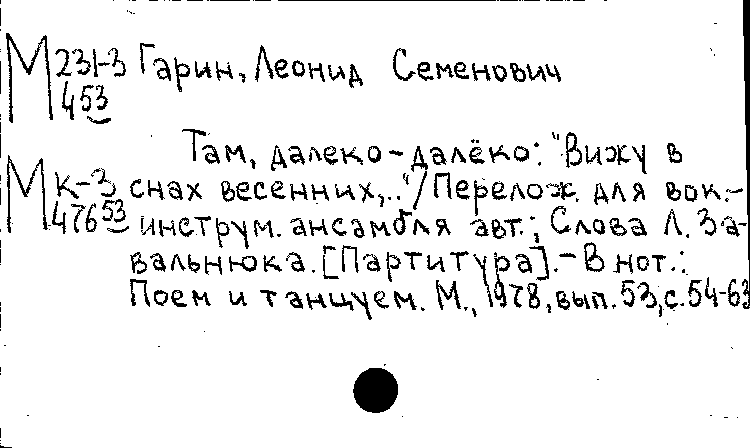 М 231-3 Гарин, Леонид Семенович
453
Там, далеко-далёко: "Вижу в
М К-3 снах весенних,.."/ Перелож. для вок.-
476 53 инструм. ансамбля авт.; Слова Л. За-
вальнюка. [Партитура]. - В нот.:
Поем и танцуем. М., 1978, вып. 53, с. 54-63